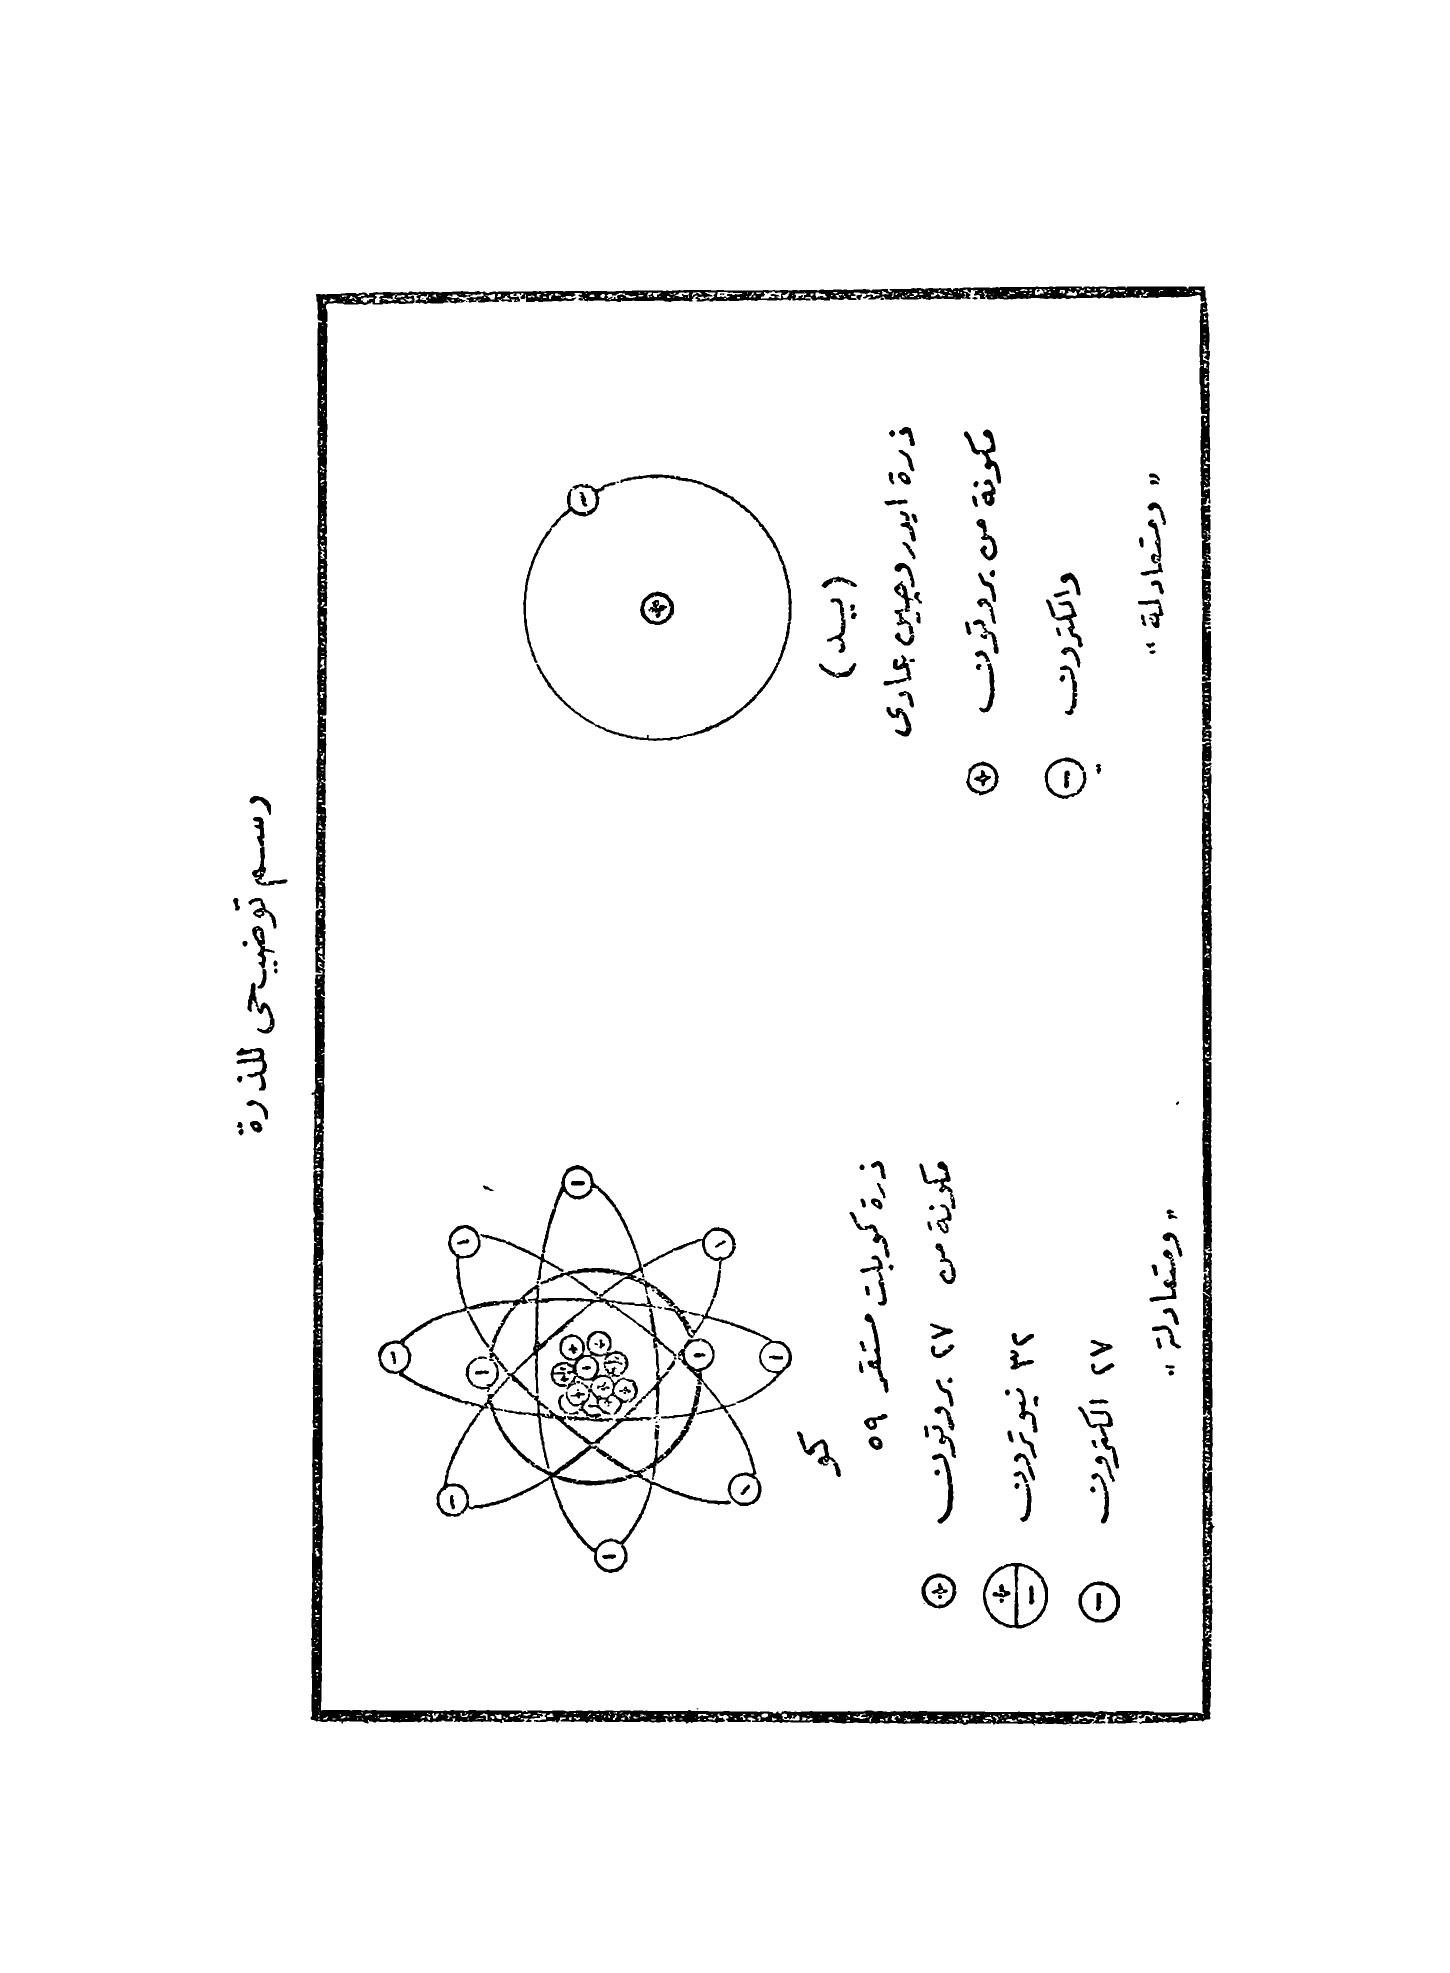 رسم توضيحى للذرة
(يد)
ذرة ايدروجين عادى
مكونة من بروتون
والكترون
"ومتعادلة"
كو
ذرة كوبلت مستقر ٥٩
مكونة من ٢٧ بروتون
٣٢ نيوترون
٢٧ الكترون
"ومتعادلة"